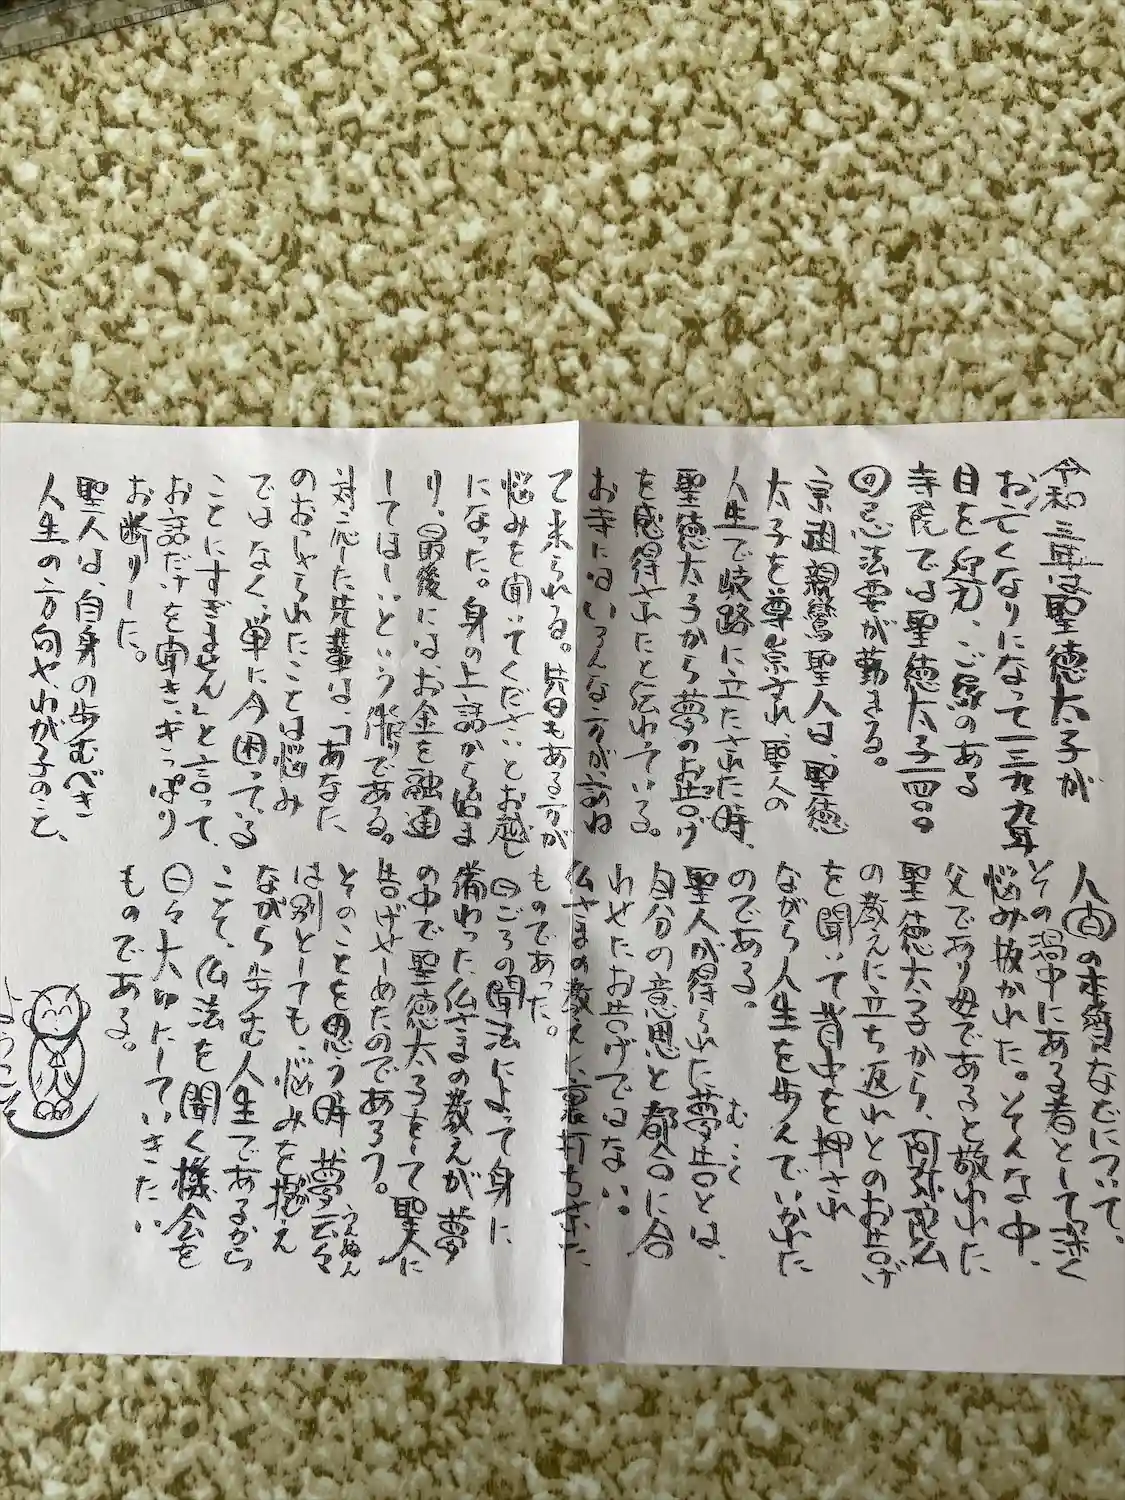 令和三年は聖徳太子が
お亡くなりになって一三九九年
目を迎え、ご縁のある
寺院では聖徳太子一四〇〇
回忌法要が勤まる。
宗祖親鸞聖人は、聖徳
太子を尊崇され、聖人の
人生で岐路に立たされた時、
聖徳太子から夢のお告げ
を感得されたと伝わっている。
お寺にはいろんな方が訪ね
て来られる。先日もある方が
悩みを聞いてくださいとお越し
になった。身の上話から始ま
り、最後には、お金を融通
してほしいという件である。
対応した先輩は、「あなた
のおっしゃられたことは悩み
ではなく、単に今困っている
ことにすぎません」と言って、
お話だけを聞き、きっぱり
お断りした。
聖人は、自身の歩むべき
人生の方向や、わが子のこと、
人間の本質などについて、
その渦中にある者として深く
悩み抜かれた。そんな中、
父であり母であると敬われた
聖徳太子から、阿弥陀仏
の教えに立ち返れとのお告げ
を聞いて背中を押され
ながら人生を歩んでいかれた
のである。
聖人が得られた夢告とは、
むこく
自分の意思と都合に合
わせたお告げではない。
仏さまの教えに裏打ちされた
ものであった。
日ごろの聞法によって身に
備わった仏さまの教えが夢
の中で聖徳太子をして聖人に
告げせしめたのであろう。
そのことを思う時、夢云々
うんぬん
は別としても、悩みを抱え
ながら歩む人生であるから
こそ、仏法を聞く機会を
日々大切にしていきたい
ものである。
ようこそ